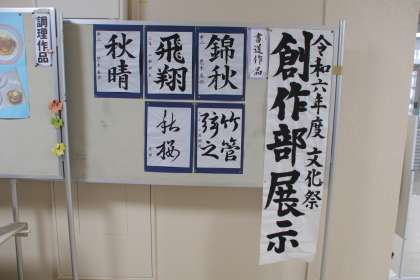 令和六年度 文化祭
創作部展示
書道作品
錦秋
飛翔
秋晴
竹管
秋桜
調理作品